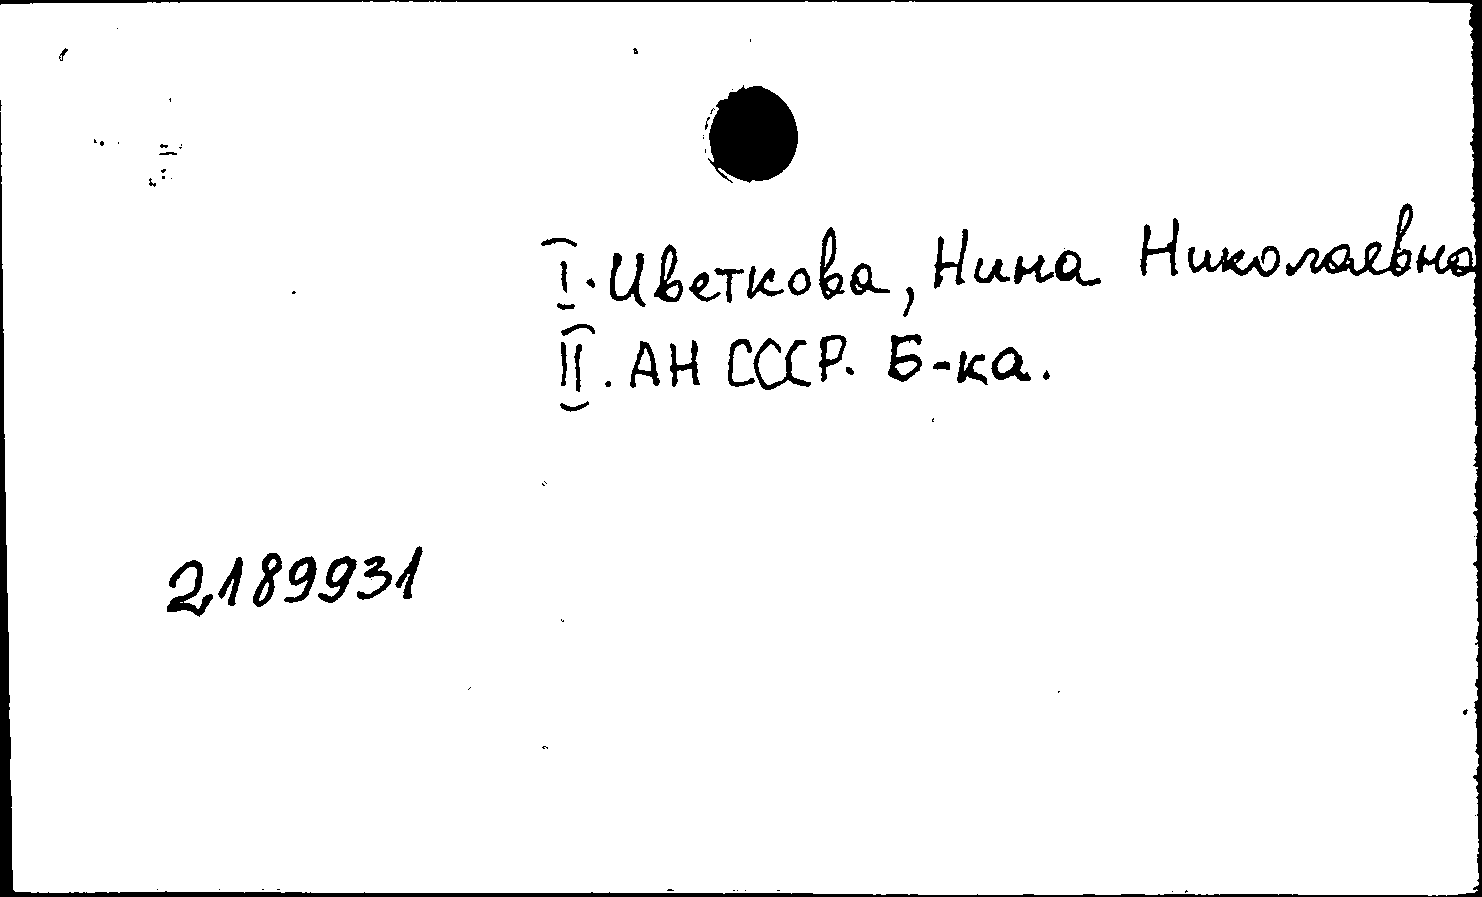 I. Цветкова, Нина Николаевна
II. АН СССР. Б-ка.
2189931